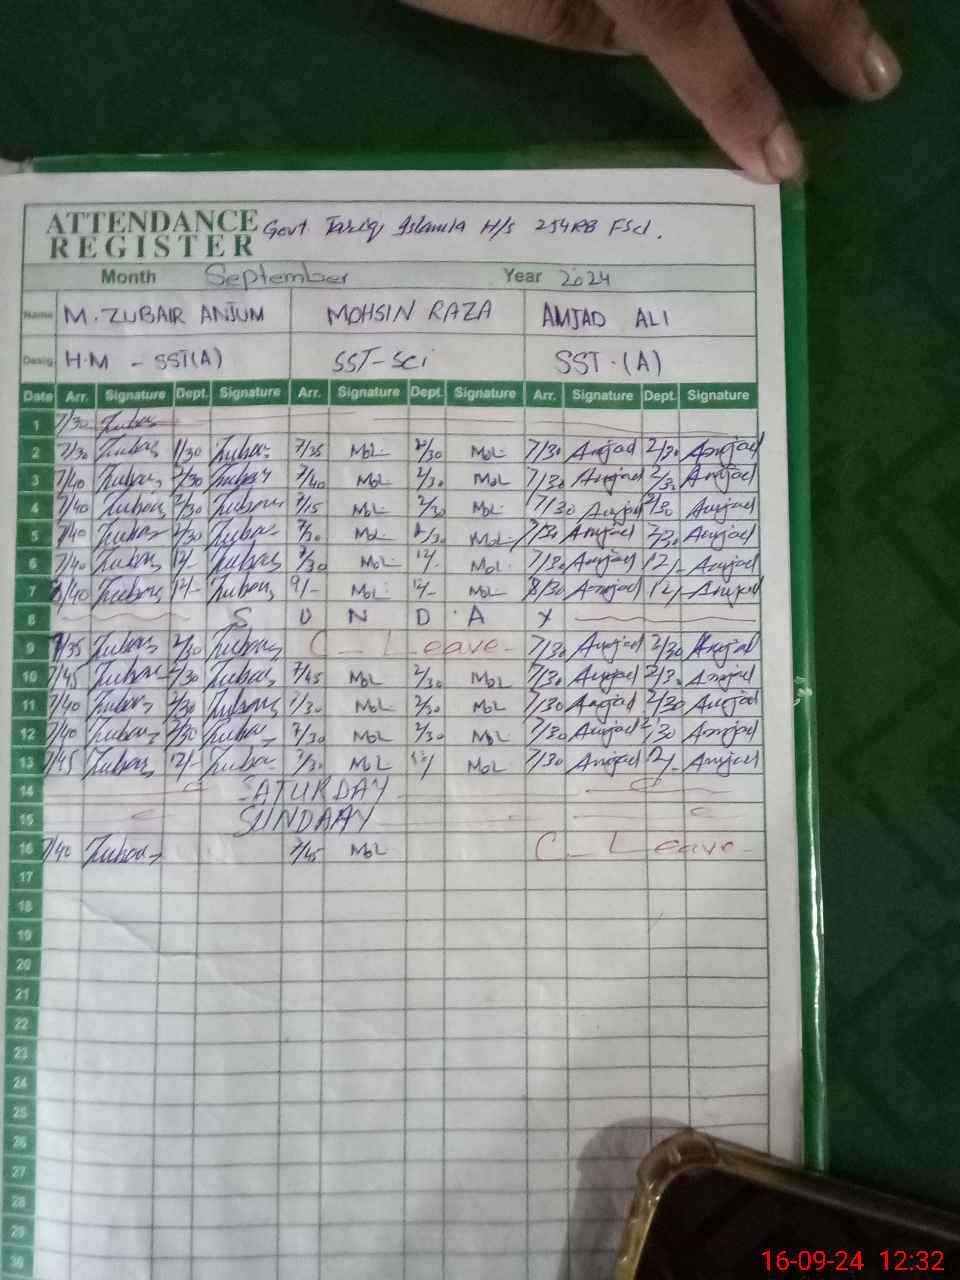 ATTENDANCE REGISTER Govt. Tariq Islamia H/S 254RB FSd.
Month September Year 2024
Name M. ZUBAIR ANJUM MOHSIN RAZA AMJAD ALI
Desig. H.M - SST(A) SST-Sci SST.(A)
Date Arr. Signature Dept. Signature Arr. Signature Dept. Signature Arr. Signature Dept. Signature
1 7/30
2 7/30 1/30 7/35 2/30 7/30 Amjad 2/30 Amjad
3 7/40 2/30 7/40 2/30 7/30 Amjad 2/30 Amjad
4 7/40 2/30 7/15 2/30 7/30 Amjad 2/30 Amjad
5 7/40 2/30 7/30 2/30 7/30 Amjad 2/30 Amjad
6 7/40 12/- 7/30 12/- 7/30 Amjad 12/- Amjad
7 8/40 12/- 9/- 12/- 8/30 Amjad 12/- Amjad
8 S U N D A Y
9 7/35 2/30 C - Leave - 7/30 Amjad 2/30 Amjad
10 7/45 2/30 7/45 2/30 7/30 Amjad 2/30 Amjad
11 7/40 2/30 7/30 2/30 7/30 Amjad 2/30 Amjad
12 7/40 2/30 7/30 2/30 7/30 Amjad 2/30 Amjad
13 7/45 12/- 7/30 12/ 7/30 Amjad 12/- Amjad
14 SATURDAY
15 SUNDAAY
16 7/40 7/45 C - Leave -
17
18
19
20
21
22
23
24
25
26
27
28
29
30
16-09-24 12:32